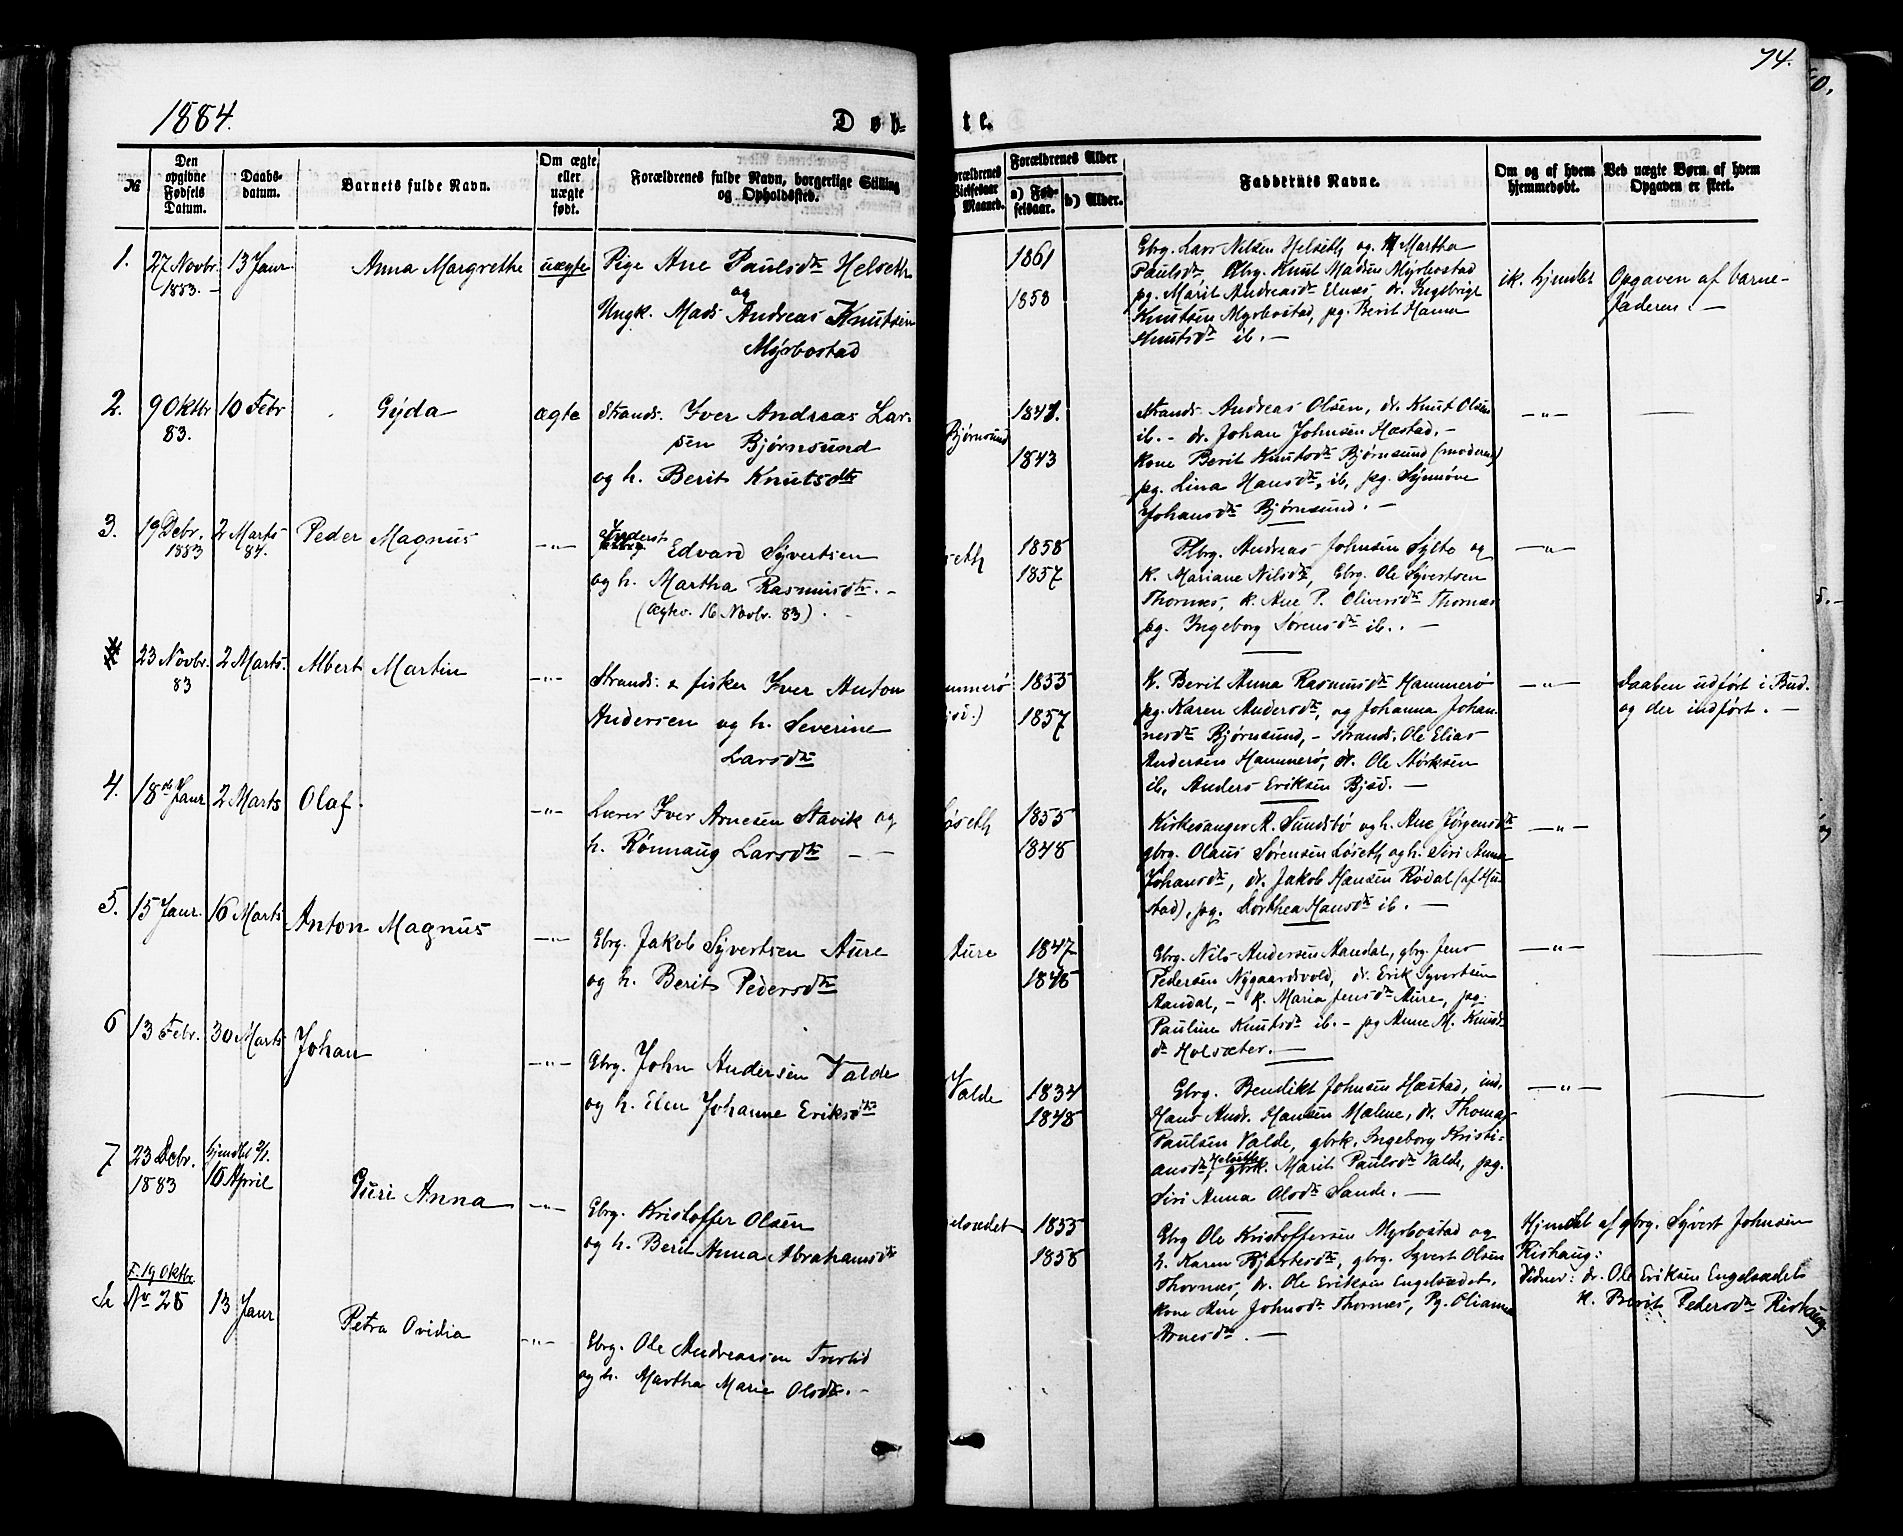 74.
1884.
Døb-
te.
№
Den opgivne Fødsels Datum.
Daabs-datum.
Barnets fulde Navn.
Om ægte eller uægte født.
Forældrenes fulde Navn, borgerlige Stilling og Opholdssted.
Forældrenes Alder
a) Fød-selsaar.
b) Alder.
Faddernes Navne.
Om og af hvem hjemmedøbt.
Ved uægte Børn, af hvem Opgaven er skeet.
1.
27 Novbr. 1883.
13 Janr
Anna Margrethe
uægte
Pige Ane Paulsdtr Helseth
og
Ungk. Mads Andreas Knutsen
Myrbostad
1861
1858
Gbrg. Lars Nilsen Helseth og K Martha
Paulsdtr, Gbrg. Knut Madsen Myrbostad
pg. Marit Andreasdtr Elnes, dr. Ingebrigt
Knutsen Myrbostad, pg. Berit Hanna
Knutsdtr ib. —
ik. hjemdøt
Opgaven af barne-
faderen. —
2.
9 Oktbr 83.
10 Febr
Gyda
ægte
Strands. Iver Andreas Lar-
sen Bjørnsund
og h. Berit Knutsdtr
Bjørnsund
1843
Strands. Andreas Olsen, dr. Knut Olsen
ib. - dr. Johan Johnsen Hæstad. -
Kone Berit Knutsdtr Bjørnsund (moderen)
pg. Lina Hansdtr, ib, pg. Synnøve
Johansdtr Bjørnsund. —
—"—
3.
19 Debr. 1883
2 Marts 84.
Peder Magnus
—"—
Inderst
Edvard Syvertsen
og h. Martha Rasmusdtr. -
(Ægtev. 16 Novbr. 83). -
1858
1857
Gbrg. Andreas Johnsen Sylte og
K. Mariane Nilsdtr, Gbrg. Ole Syvertsen
Thornes, K. Ane P. Oliversdtr Thornæs
pg. Ingeborg Sørensdtr ib. . —
—"—
23 Novbr. 83
2 Marts.
Albert Martin
—"—
Strands. & fisker Iver Anton
Andersen og h. Severine
Larsdtr
1855
1857
K. Berit Anna Rasmusdtr Hammerø
pg. Karen Andersdtr, og Johanna Johan-
nesdtr Bjørnsund, - Strands. Ole Elias
Andersen Hammerø, dr. Ole Størksen
ib, Anders Eriksen Bjsd. —
—"—
Daaben udført i Bud.
og der indført. —
4.
18de Janr
2 Marts
Olaf.
—"—
Lærer Iver Arnesen Stavik og
h. Rønnaug Larsdtr — -
1855
1848
Kirkesanger A. Sundsbø og h. Ane Jørgensdtr
gbrg. Olaus Sørensen Løseth og h. Siri Anna
Johansdtr, dr. Jakob Hansen Rødal (af Hu-
stad), pg. Dorthea Hansdtr ib. —
—"—
5.
15 Janr.
16 Marts
Anton Magnus
—"—
Gbrg. Jakob Syvertsen Aure
og h. Berit Pedersdtr
Aure
1847
1848
Gbrg. Nils Andersen Aandal, gbrg. Jens
Pedersen Nygaardsvold, dr. Erik Syvertsen
Aandal, - K. Maria Jensdtr Aure, pg.
Pauline Knutsdtr ib. - pg Anne M. Knuds
dtr Holsæter. —
—"—
6
13 Febr.
30 Marts
Johan
—"—
Gbrg. John Andersen Valde
og h. Elen Johanne Eriksdtr
Valde
1834
1848
Gbrg. Bendikt Johnsen Hæstad, ind.
Hans Andr. Hansen Malme, dr. Thomas
Paulsen Valde, gbrk. Ingeborg Kristi-
ansdtr Helseth, gbrk. Marit Paulsdtr Valde, pg.
Siri Anna Olsdtr Sande. —
—"—
7
23 Debr. 1883
hjemdøbt
16 April
Guri Anna
—"—
Gbrg. Kristoffer Olsen
og h. Berit Anna Abrahamsdtr
1855
1858
Gbrg Ole Kristoffersen Myrbostad og
h. Karen Hjertesdtr, gbrg. Syvert Olsen
Thornæs, dr. Ole Eriksen Engelsædet,
Kone Ane Johnsdtr Thornæs, Pg. Olianna
Arnesdtr. —
Hjemdøbt af gbrg. Syvert Johnsen
Rishaug:
Vidner: dr. Ole Eriksen Engelsædet
K. Berit Pedersdtr Rishaug
F. 19 Oktbr.
No 28
13 Janr
Petra Ovidia
—"—
Gbrg. Ole Andreassen Tverlid
og h. Martha Marie Olsdtr. -